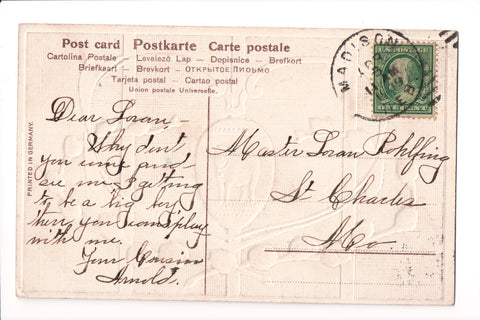 Post card Postkarte Carte postale
Cartolina Postale - Levelező Lap - Dopisnice - Brefkort
Briefkaart - Brevkort - ОТКРЫТОЕ ПИСЬМО
Tarjeta postal - Cartao postal
Union postale Universelle.
PRINTED IN GERMANY.
MADISON
U.S. POSTAGE
ONE CENT
Dear Loran,-
Why don't
you come and
see me I getting
to be a big boy
then you can play
with me.
Your Cousin
Arnold.
Master Loran Pohlfing
St Charles
Mo